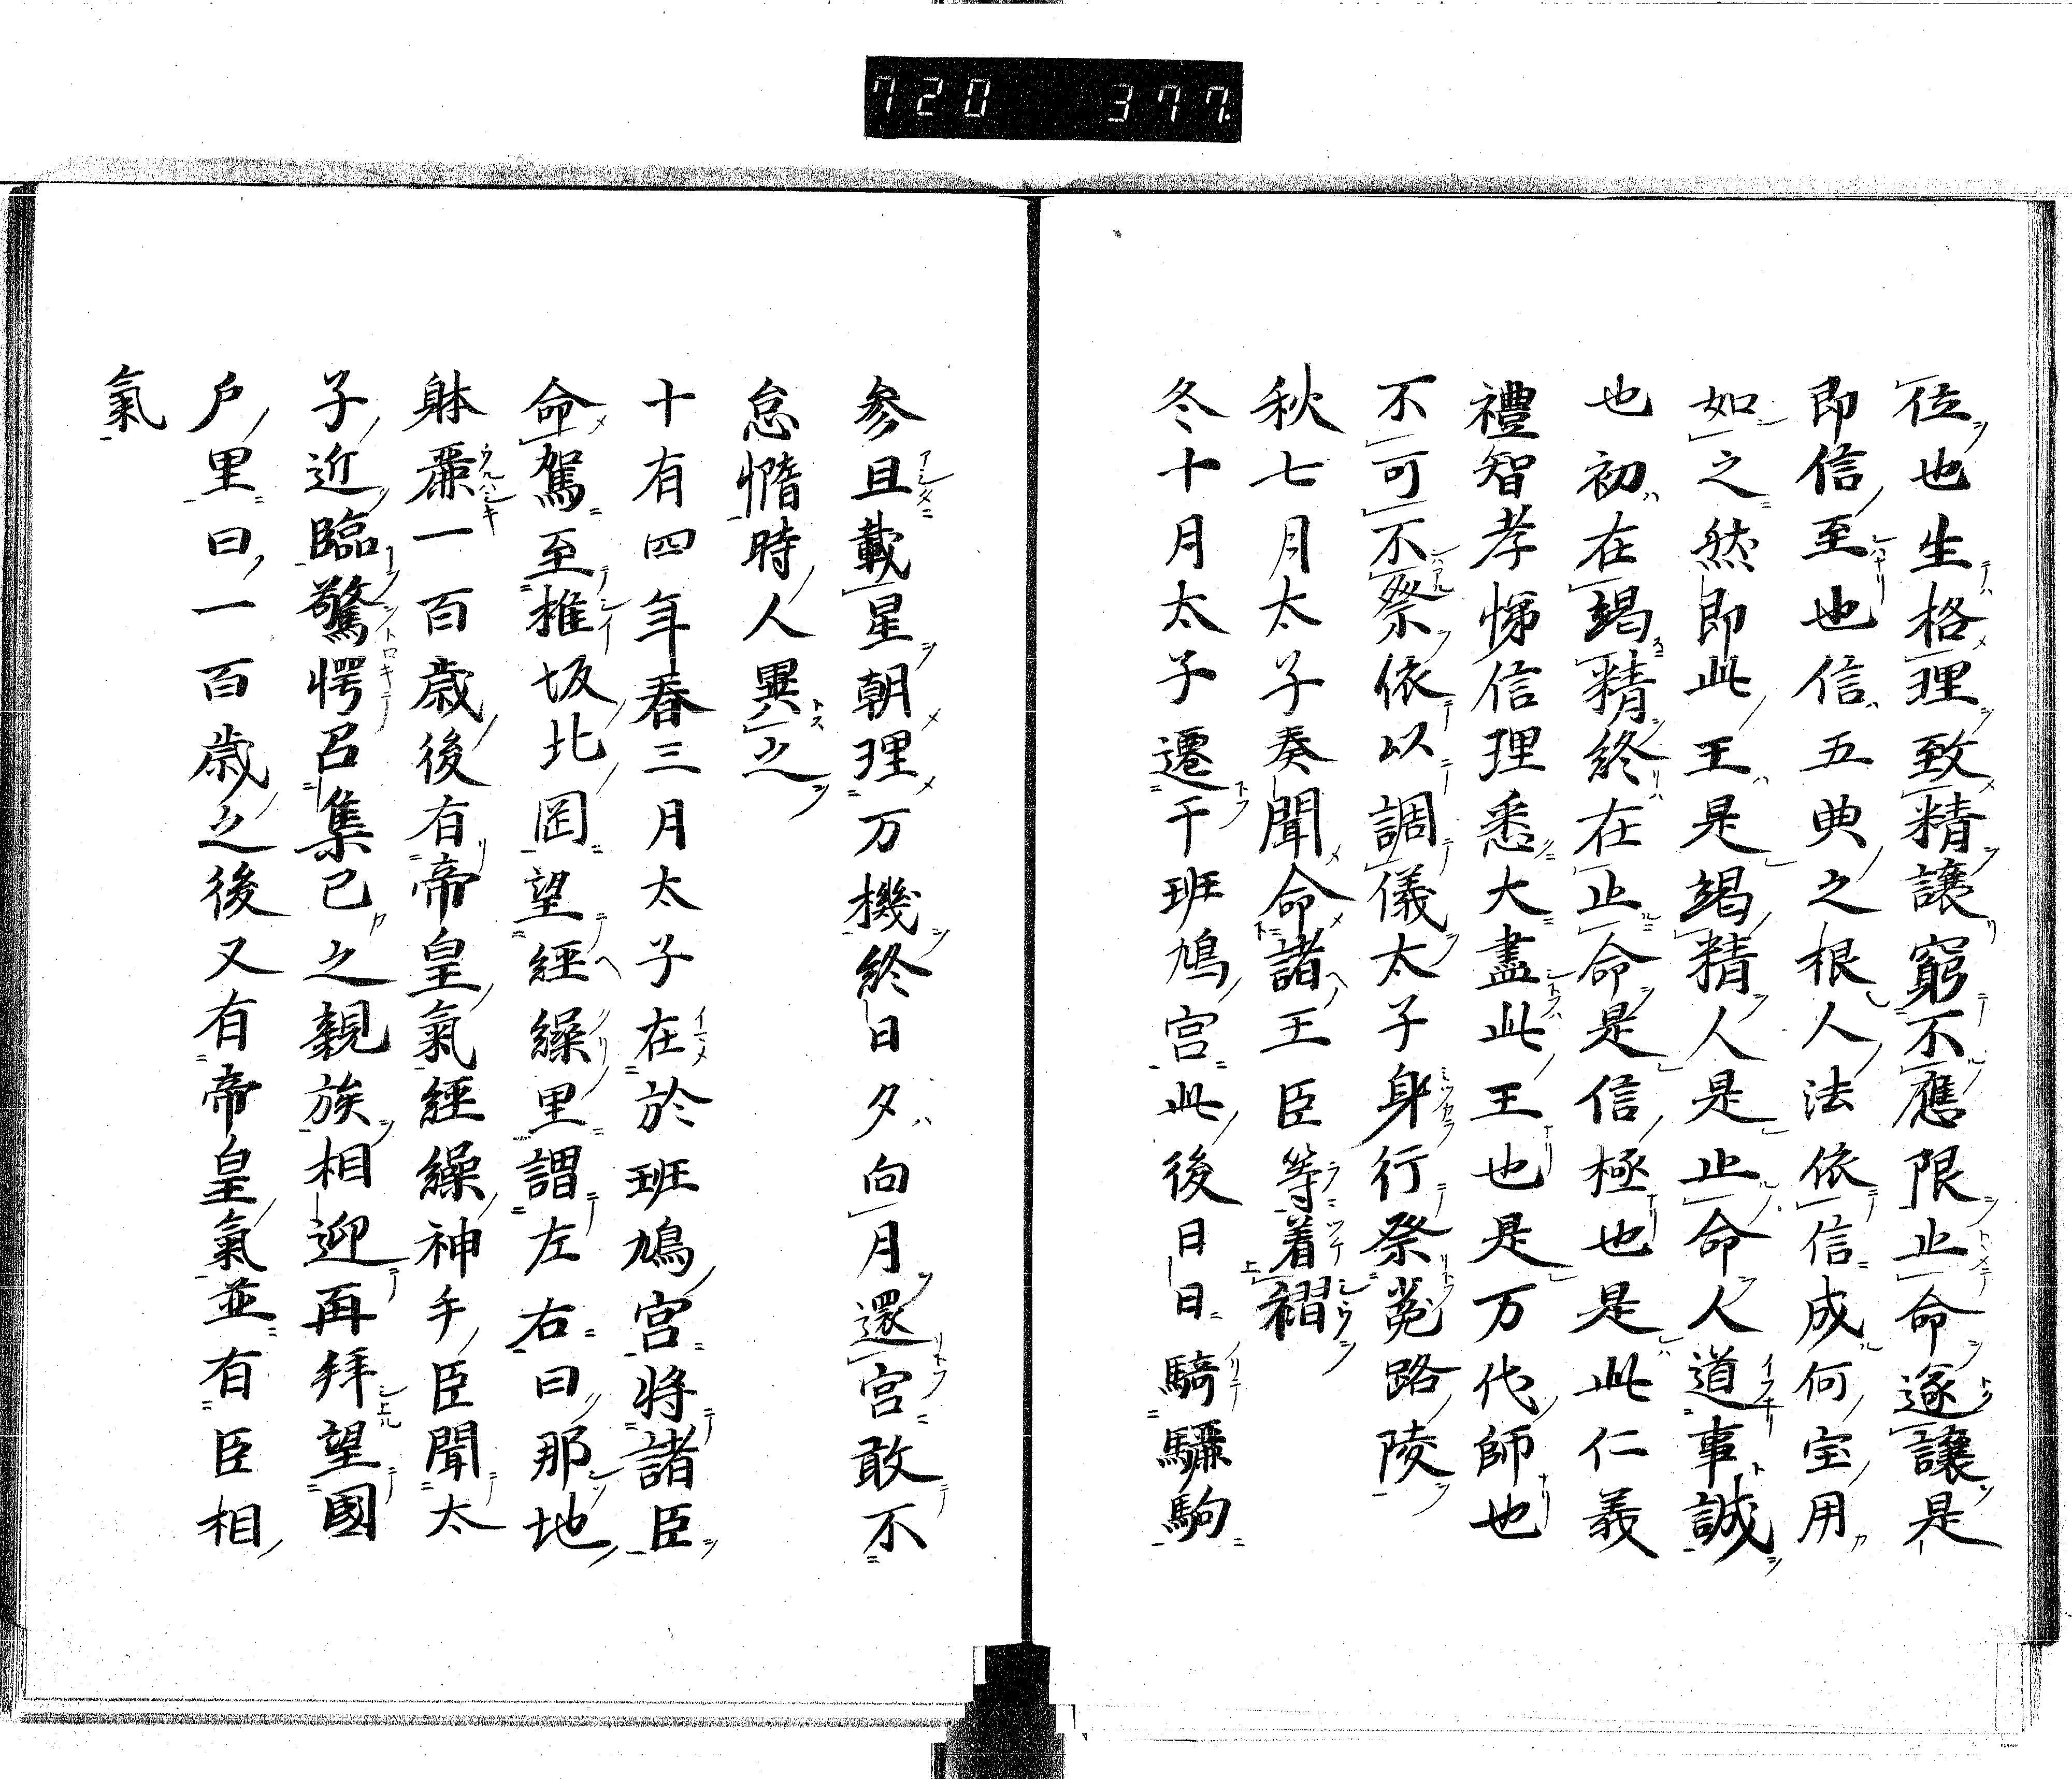 720 377
位也生格理致精讓窮不應限止命逐讓是
即信至也信五典之根人法依信成何宝用
如之然即此王是竭精人是止命人道事誠
也初在竭精終在止命是信極也是此仁義
禮智孝悌信理悉大盡此王也是万代師也
不可不祭依以調儀太子身行祭菟路陵
秋七月太子奏聞命諸王臣等着褶
冬十月太子遷于班鳩宮此後日日騎驪駒
參旦載星朝理万機終日夕向月還宮敢不
怠惰時人異之
十有四年春三月太子在於班鳩宮將諸臣
命駕至椎坂北岡望經繰里謂左右曰那地
躰麗一百歳後有帝皇氣經繰神手臣聞太
子近臨驚愕召集己之親族相迎再拜望國
戸里曰一百歳之後又有帝皇氣並有臣相
氣